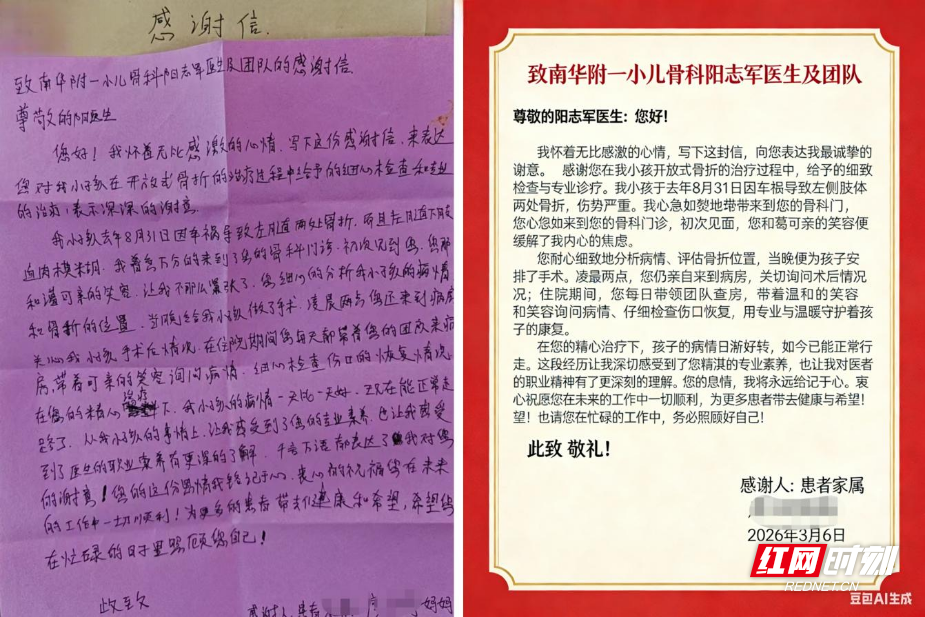 感谢信
致南华附一小儿骨科阳志军医生及团队的感谢信
尊敬的阳医生
您好！我怀着无比感激的心情，写下这份感谢信，来表达
您对我小孩在开放式骨折的治疗过程中给予的细心检查和专业
的治疗，表示深深的谢意
我小孩去年8月31日因车祸导致左腿两处骨折，而且左腿下肢
血肉模糊，我着急万分的来到了您的骨科门诊，初次见到您，您那
和谐可亲的笑容，让我不那么紧张了，您细心的分析我小孩的病情
和骨折的位置，当晚给我小孩做了手术，凌晨两点您还来到病房
关心我小孩手术后情况，在住院期间您每天都带着您的团队来病
房，带着可亲的笑容询问病情，细心检查伤口的恢复情况
在您的精心治疗下，我小孩的病情一天比一天好，现在能正常走
路了，从我小孩的事情上，让我感受到了您的专业素养，也让我感受
到了医生的职业素养有更深的了解，千言万语都表达了我对您
的谢意！您的这份恩情我铭记于心，衷心的祝福您在未来
的工作中一切顺利！为更多的患者带去健康和希望，希望您
在忙碌的日子里照顾您自己！
此致
感谢人：患者 妈妈
致南华附一小儿骨科阳志军医生及团队
尊敬的阳志军医生：您好！
我怀着无比感激的心情，写下这封信，向您表达我最诚挚的
谢意。 感谢您在我小孩开放式骨折的治疗过程中，给予的细致
检查与专业诊疗。我小孩于去年8月31日因车祸导致左侧肢体
两处骨折，伤势严重。我心急如焚地带带来到您的骨科门，
您心您如来到您的骨科门诊，初次见面，您和葛可亲的笑容便
缓解了我内心的焦虑。
您耐心细致地分析病情、评估骨折位置，当晚便为孩子安
排了手术。凌最两点，您仍亲自来到病房，关切询问术后情况
况；住院期间，您每日带领团队查房，带着温和的笑容
和笑容询问病情、仔细检查伤口恢复，用专业与温暖守护着孩
子的康复。
在您的精心治疗下，孩子的病情日渐好转，如今已能正常行
走。这段经历让我深切感受到了您精淇的专业素养，也让我对医者
的职业精神有了更深刻的理解。您的息情，我将永远给记于心。衷
心祝愿您在未来的工作中一切顺利，为更多患者带去健康与希望！
望！也请您在忙碌的工作中，务必照顾好自己！
此致 敬礼！
感谢人：患者家属
2026年3月6日
红网时刻
REDNET.CN
豆包AI生成